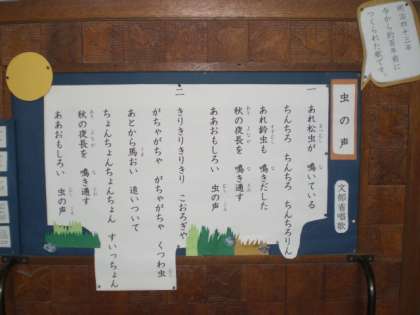 明治四十三年
今から約百年前に
つくられた歌です。
虫の声
文部省唱歌
一 あれ松虫が 鳴いている
ちんちろ ちんちろ ちんちろりん
あれ鈴虫も 鳴きだした
秋の夜長を 鳴き通す
ああおもしろい 虫の声
二 きりきりきりきり こおろぎや
がちゃがちゃ がちゃがちゃ くつわ虫
あとから馬おい 追いついて
ちょんちょんちょんちょん すいっちょん
秋の夜長を 鳴き通す
ああおもしろい 虫の声